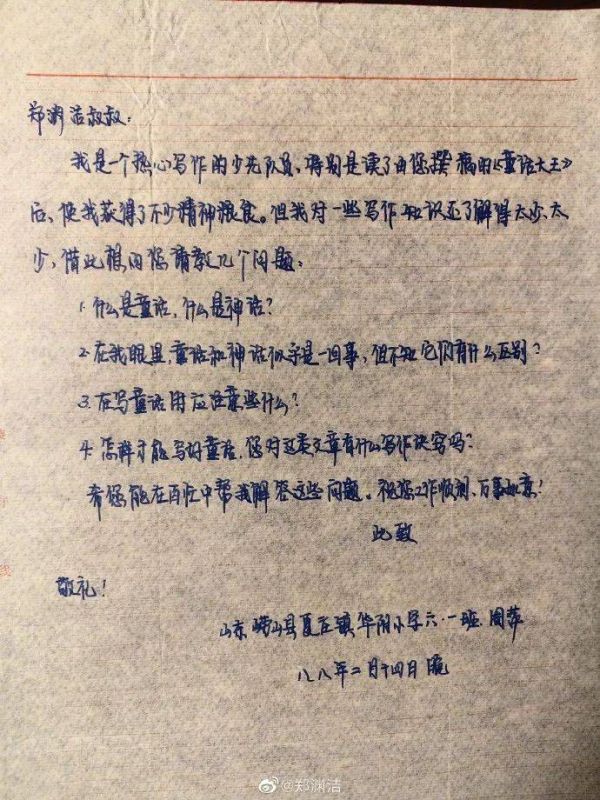 郑渊洁叔叔:
我是一个热心写作的少先队员、特别是读了由您撰稿的《童话大王》
后、使我获得了不少精神粮食。但我对一些写作知识还了解得太少、太
少、借此想向您请教几个问题、
1.什么是童话,什么是神话?
2.在我眼里、童话和神话似乎是一回事,但不知它们有什么区别?
3.在写童话时应注意些什么?
4.怎样才能写好童话,您对这类文章有什么写作诀窍吗?
希您能在百忙中帮我解答这些问题。祝您工作顺利、万事如意!
此致
敬礼!
山东崂山县夏庄镇华阴小学六·一班 周萍
八八年二月十四日晚
@郑渊洁